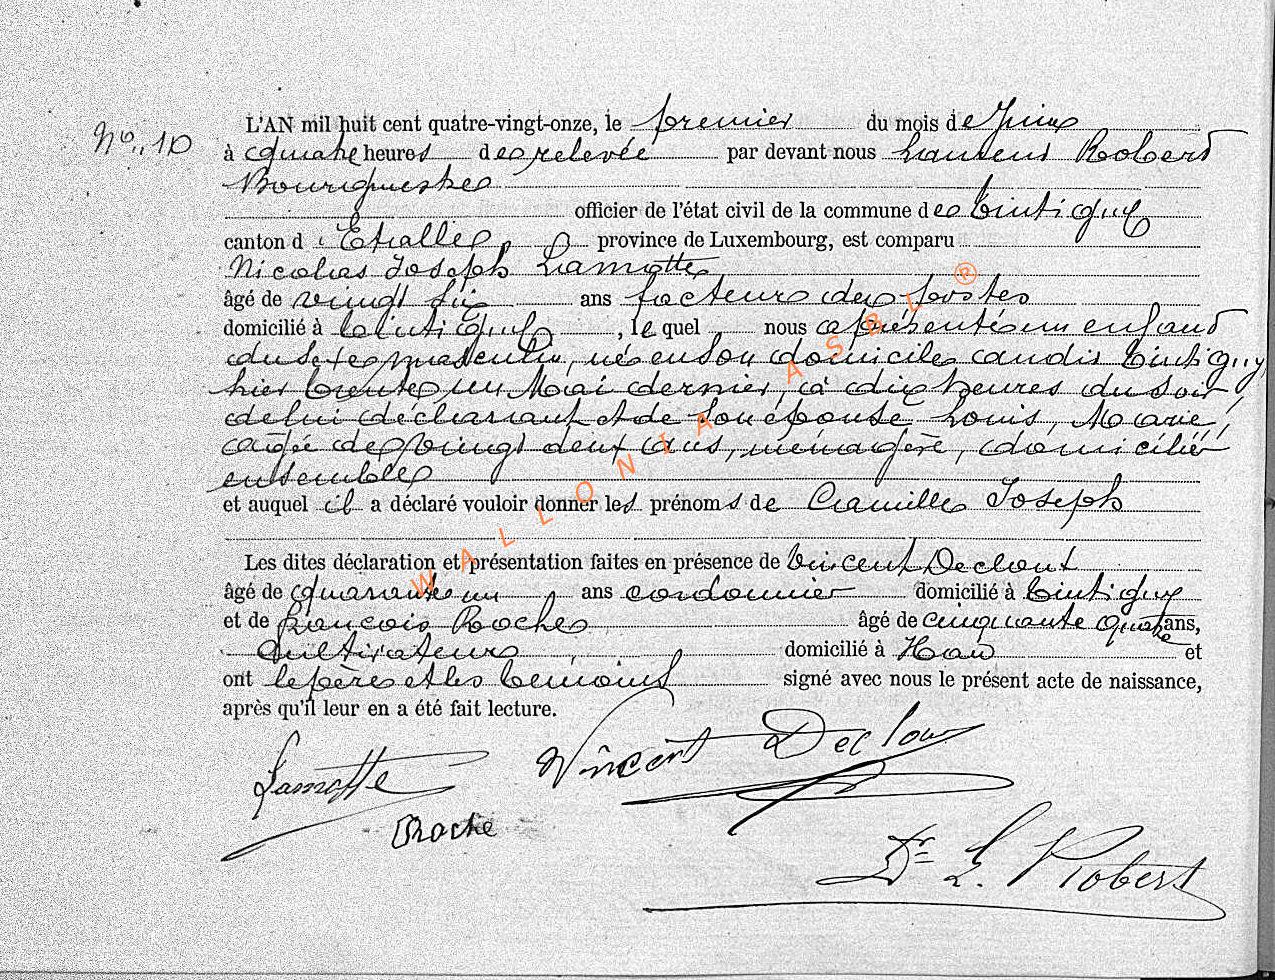 No. 10
L'AN mil huit cent quatre-vingt-onze, le premier du mois de Juin
à quatre heures de relevée par devant nous Laurent Robert
Bourgmestre
officier de l'état civil de la commune de Tintigny
canton d'Etalle, province de Luxembourg, est comparu
Nicolas Joseph Lamotte
âgé de vingt six ans facteur des postes
domicilié à Tintigny, lequel nous a présenté un enfant
du sexe masculin, né en son domicile audit Tintigny,
hier trente un Mai dernier, à dix heures du soir,
de lui déclarant et de son épouse Louis, Marie,
agée de vingt deux ans, ménagère, domiciliés
ensemble
et auquel il a déclaré vouloir donner les prénoms de Camille Joseph
Les dites déclaration et présentation faites en présence de Vincent Declout
âgé de quarante un ans cordonnier domicilié à Tintigny
et de François Roche âgé de cinquante quatre ans,
Cultivateur domicilié à Han et
ont le père et les témoins signé avec nous le présent acte de naissance,
après qu'il leur en a été fait lecture.
Lamotte Vincent Declou
Roche
Dr L. Robert
WALLONIA ASBL ®